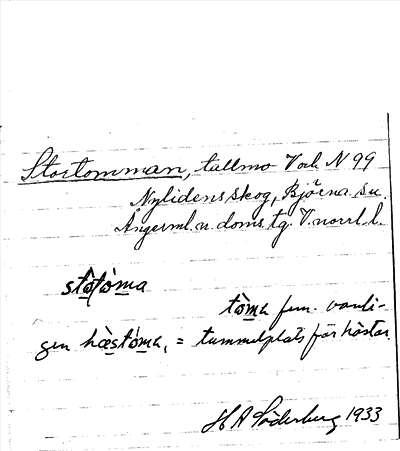 Stortomman, tallmo V och N 99
Nylidens skog, Björna sn.
Ångerml. n. doms. tg. V.norrl. l.
stὸtόma
tòma fem. vanli-
gen hæ̀stóma, = tummelplats för hästar.
H A Söderberg 1933